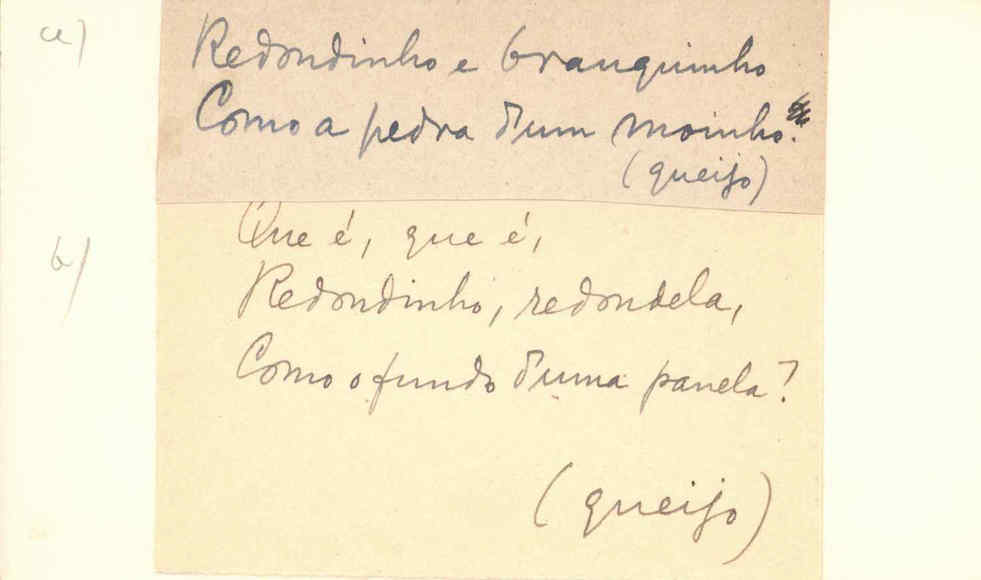 a)
Redondinho e branquinho
Como a pedra d'um moinho.
(queijo)
b)
Que é, que é,
Redondinho, redondela,
Como o fundo d'uma panela?
(queijo)